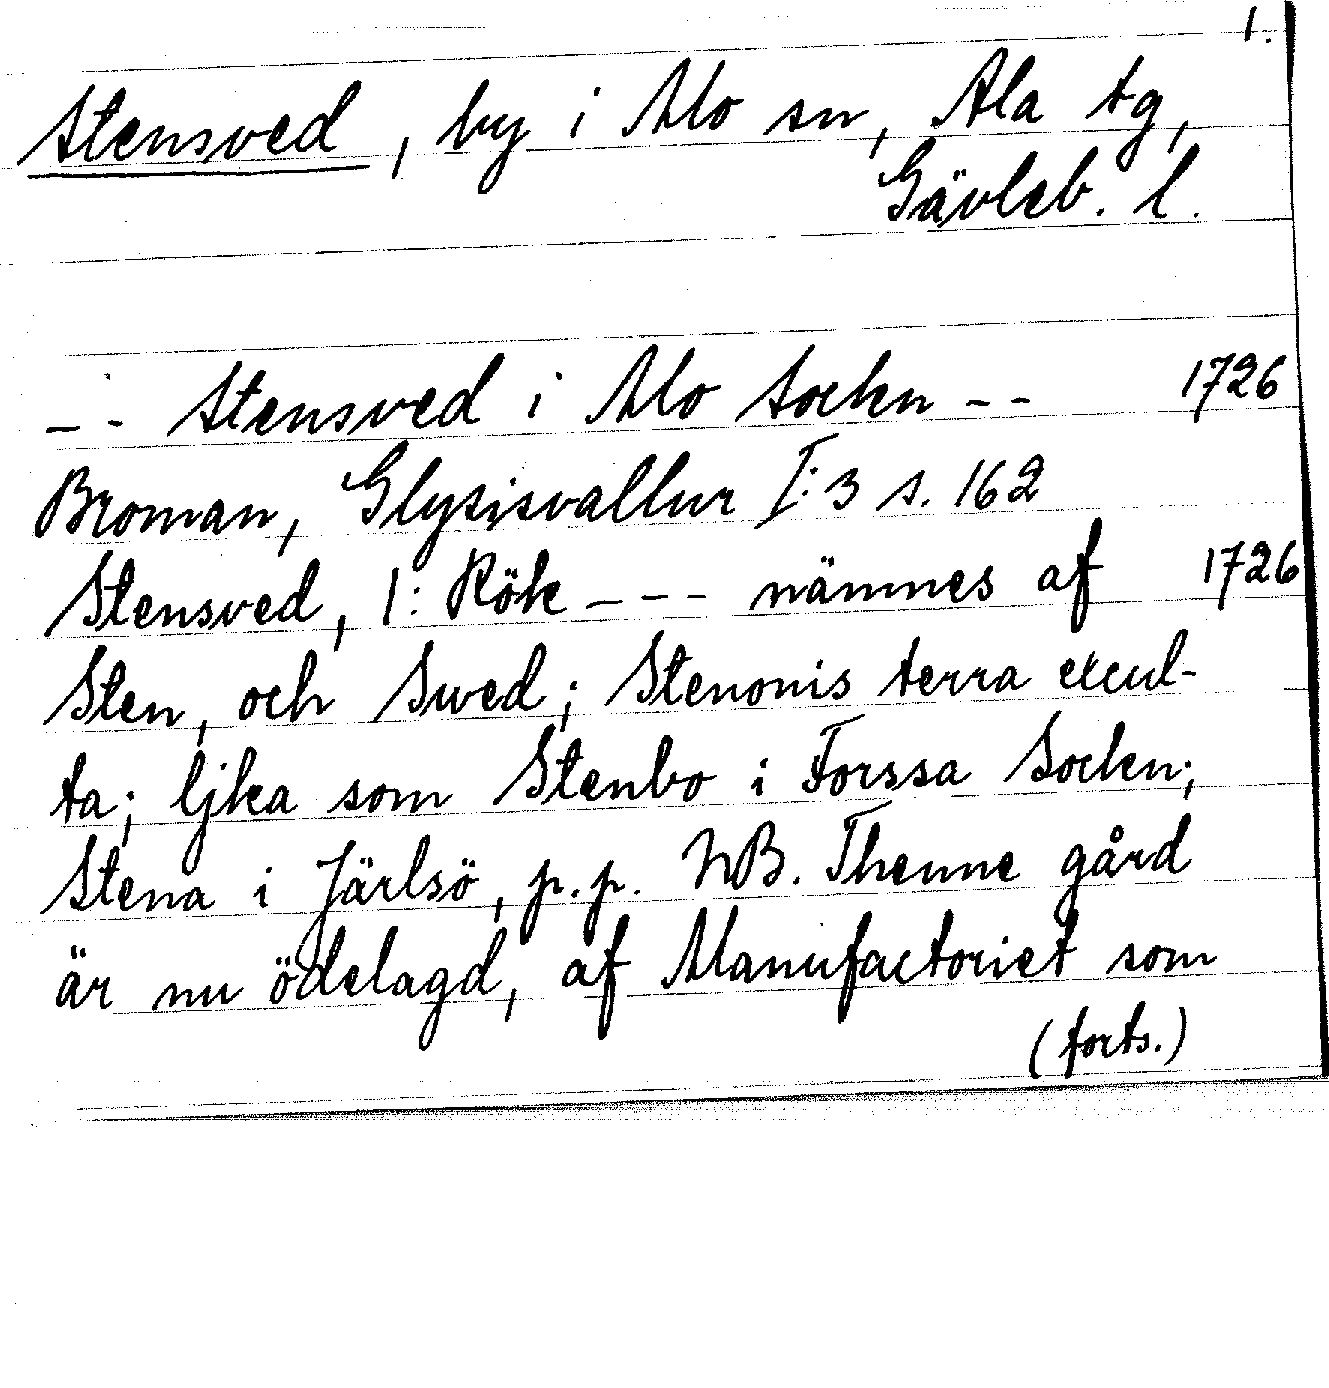 1.
Stensved, by i Mo sn, Ala tg,
Gävleb. l.
-- Stensved i Mo Sockn -- 1726
Broman, Glysisvallur I:3 s. 162
Stensved, 1: Rök --- nämnes af 1726
Sten, och Swed; Stenonis terra excul-
ta; ljka som Stenbo i Forssa Sockn;
Stena i Järlsö, p.p. NB. Thenne gård
är nu ödelagd, af Manufactoriet som
(forts.)